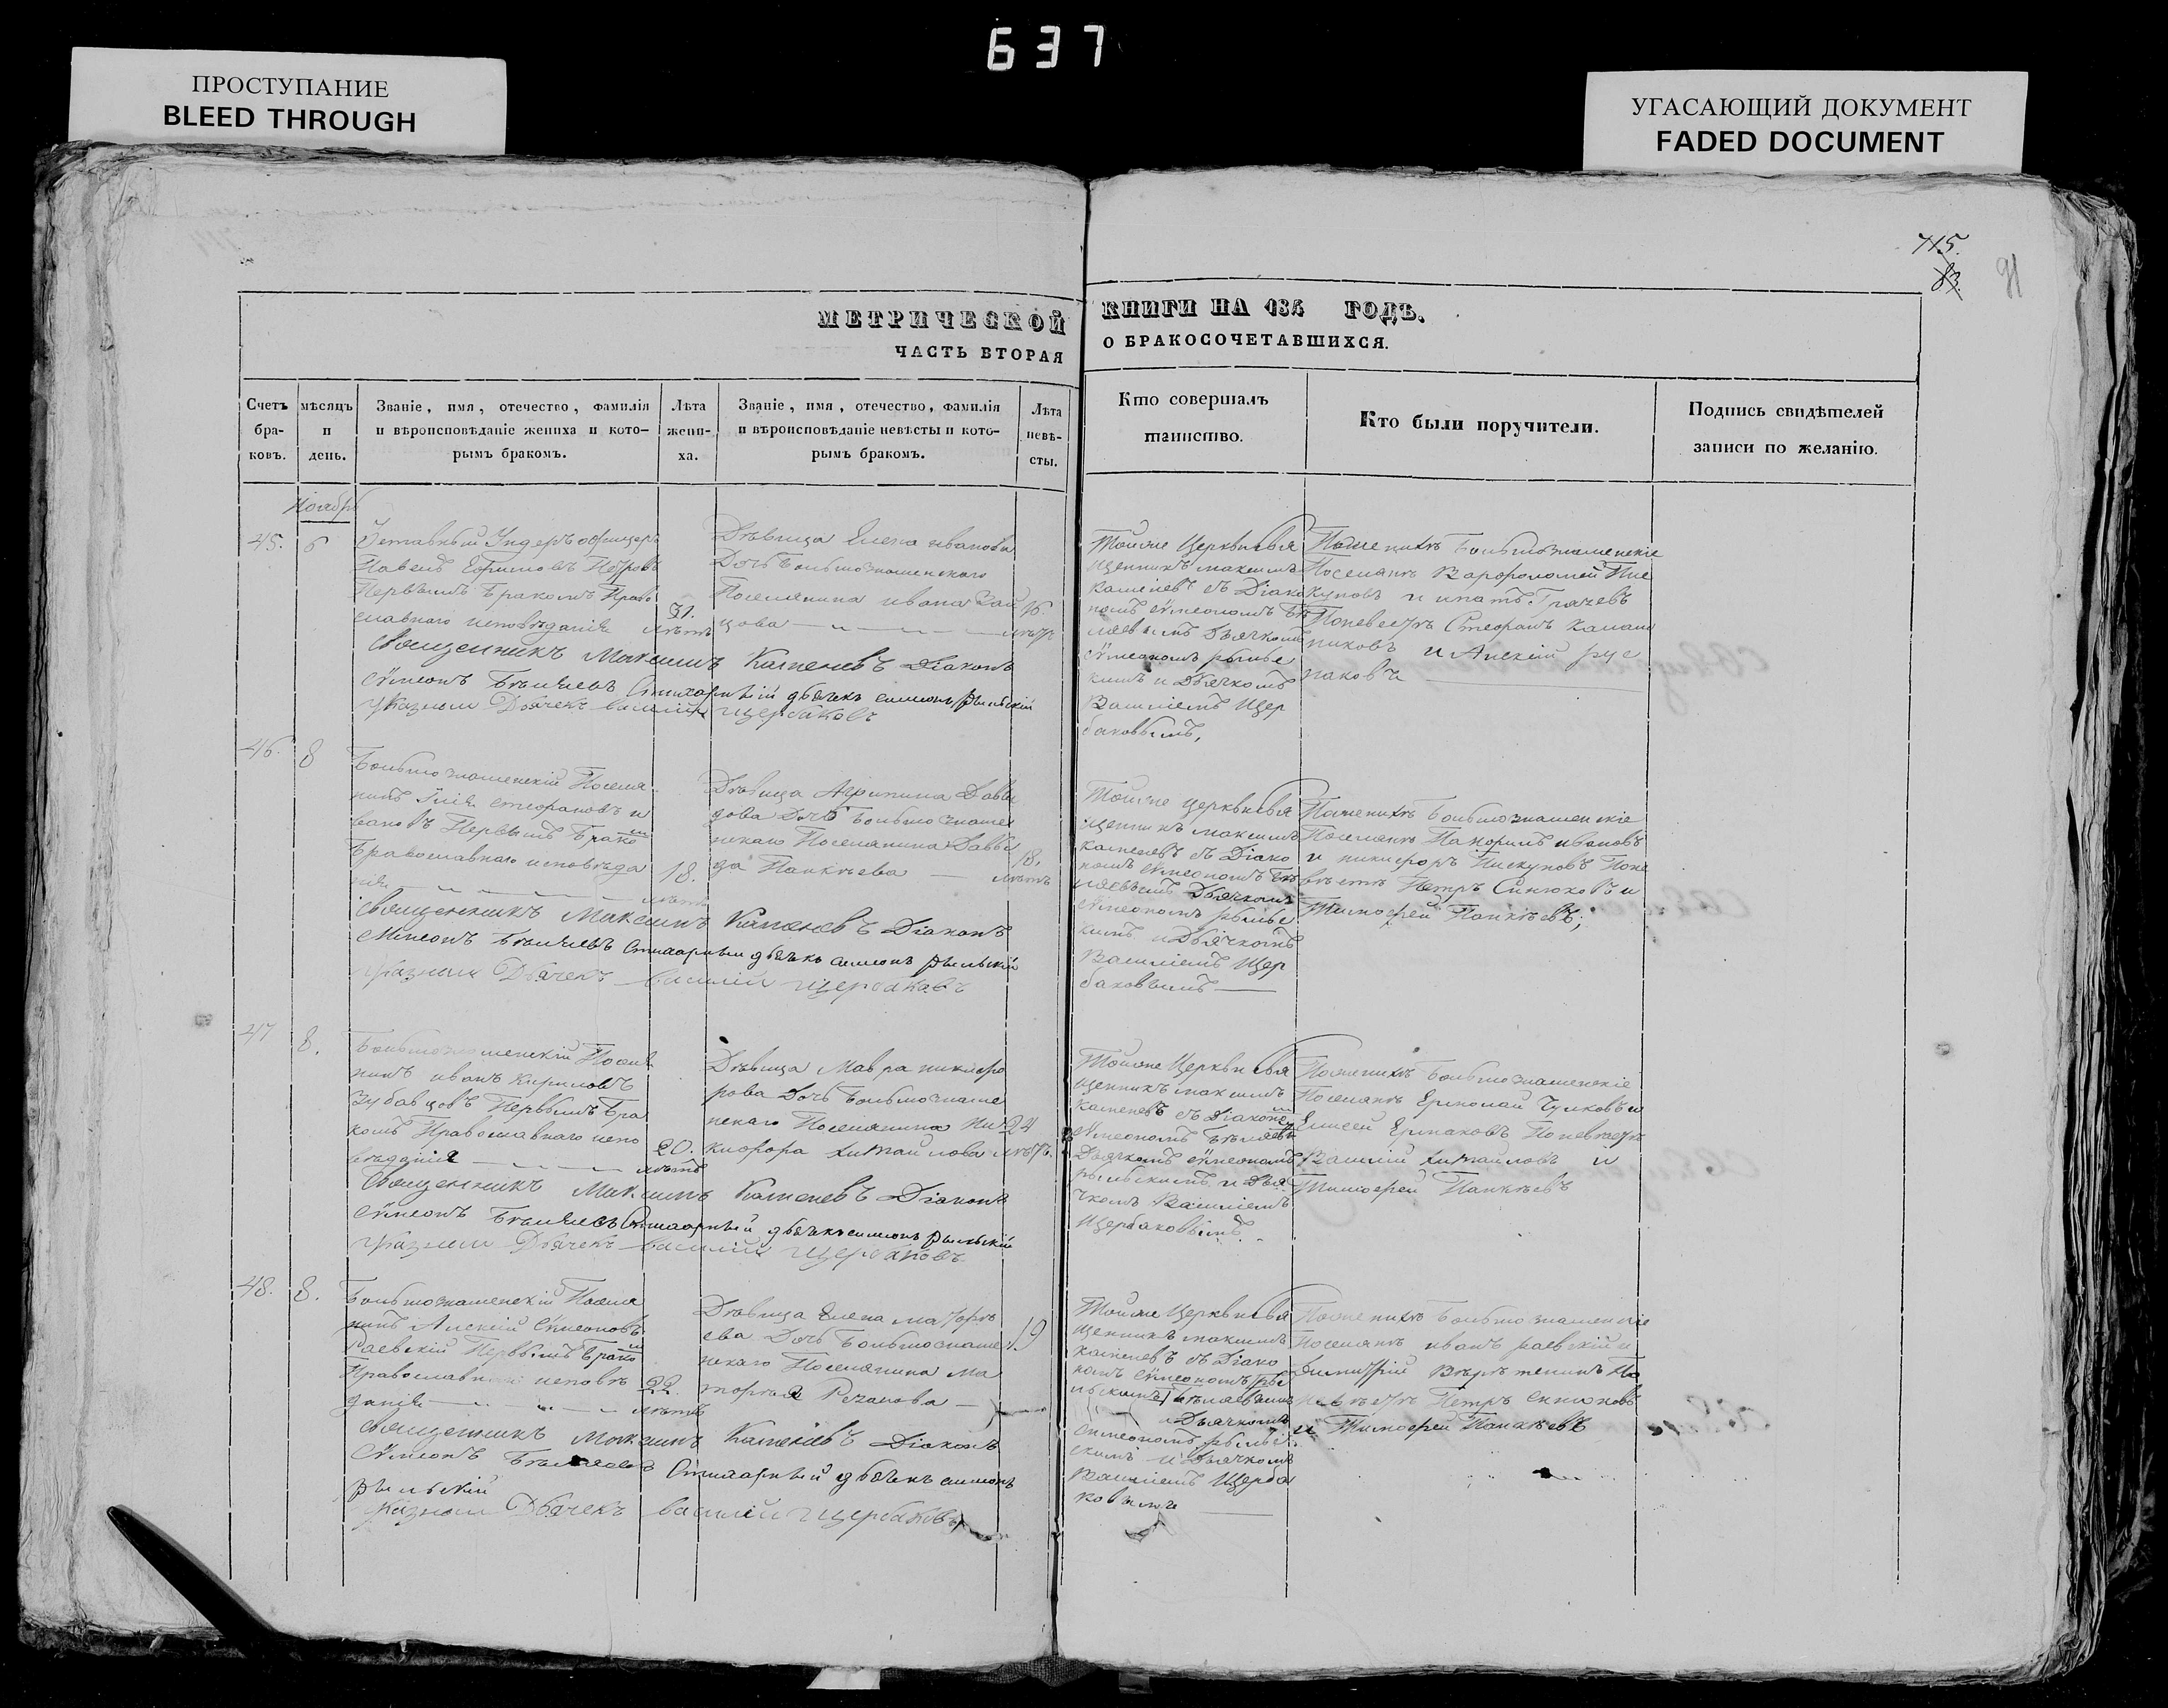 637
ПРОСТУПАНИЕ
BLEED THROUGH
УГАСАЮЩИЙ ДОКУМЕНТ
FADED DOCUMENT
715.
83.
91
МЕТРИЧЕСКОЙ
ЧАСТЬ ВТОРАЯ
КНИГИ НА 184 ГОДЪ.
О БРАКОСОЧЕТАВШИХСЯ.
Счетъ браковъ.
мѣсяцъ и день.
Званіе, имя, отечество, фамилія
и вѣроисповѣданіе жениха и кото-
рымъ бракомъ.
Лѣта
жени-
ха.
Званіе, имя, отечество, фамилія
и вѣроисповѣданіе невѣсты и кото-
рымъ бракомъ.
Лѣта
невѣ-
сты.
Кто совершалъ
таинство.
Кто были поручители.
Подпись свидѣтелей
записи по желанію.
Ноябрь
45.
6
Ундеръ офицеръ
Павелъ Ефимовъ
Первымъ Бракомъ Право
славнаго исповѣданія
31.
лѣтъ
Дѣвица Елена иванова
Дочь Большознаменскаго
Поселянина ивана Зай
цова
16.
лѣтъ
Тойже Церкви свя
щенникъ максимъ
каменевъ съ Діако
номъ сѵмеономъ Бѣ
ляевымъ Дьячкомъ
сѵмеономъ рыльс
кимъ и Дьячкомъ
Василіемъ Щер
баковымъ,
Поженихѣ Большознаменскіе
Поселяне Варфоломей Пис
куновъ и игнатъ Грачевъ
Поневестѣ Стефанъ
и Алексій
Священникъ Максимъ Каменевъ Діаконъ
Сѵмеонъ Бѣляевъ Стихарный дьячекъ симеонъ Рыльскій
указный Дьячекъ василій щербаковъ
46.
8
Большознаменскій Поселя
нинъ Илія стефановъ и
вановъ Первымъ Бракомъ
Православнаго исповѣда
нія
18.
лѣтъ
Дѣвица Агрипина Давы
дова Дочь Большознаме
нскаго Поселянина Давы
да Панкѣева
18.
лѣтъ
Тойже церкви свя
щенникъ максимъ
каменевъ съ Діако
номъ сѵмеономъ Бѣ
ляевымъ Дьячкомъ
сѵмеономъ рыльс
кимъ и Дьячкомъ
Василіемъ Щер
баковымъ
Поженихѣ Большознаменскіе
Поселяне ивановъ
и никифоръ Пискуновъ Поне
вѣстѣ Петръ Синюковъ и
Тимофей Панкѣевъ;
Священникъ Максимъ Каменевъ Діаконъ
Сѵмеонъ Бѣляевъ Стихарный дьячекъ симеонъ Рыльскій
указный Дьячекъ василій щербаковъ
47
8.
Большознаменскій Поселя
нинъ иванъ Кириловъ
Зубавцовъ Первымъ Бра
комъ Православнаго испо
вѣданія
20.
лѣтъ
Дѣвица Мавра никифо
рова Дочь Большознаме
нскаго Поселянина Ни
кифора Михайлова
24
лѣтъ.
Тойже Церкви свя
щенникъ максимъ
каменевъ съ Діаконом
сѵмеономъ Бѣляевым
Дьячкомъ сѵмеономъ
рыльскимъ и Дья
чкомъ Василіемъ
Щербаковымъ.
Поженихѣ Большознаменскіе
Поселяне Ермолай Чулковъ и
Елисей Ермаковъ Поневѣстѣ
Василій Михайловъ и
Тимофей Панкѣевъ
Священникъ Максимъ Каменевъ Діаконъ
Сѵмеонъ Бѣляевъ Стихарный дьячекъ симеонъ Рыльскій
указный Дьячекъ василій щербаковъ
48.
8.
Большознаменскій Поселя
нинъ Алексій Сѵмеоновъ
Раевскій Первымъ Бракомъ
Православнаго исповѣ
данія
22.
лѣтъ
Дѣвица Елена матфѣ
ева Дочь Большознаме
нскаго Поселянина Ма
тфѣя Резанова
19
Тойже Церкви свя
щенникъ максимъ
каменевъ съ Діако
номъ сѵмеономъ
Бѣляевымъ
Дьячкомъ
Симеономъ рыльс
кимъ и Дьячкомъ
Василіемъ Щерба
ковымъ
Поженихѣ Большознаменскіе
Поселяне иванъ раевскій и
Димитрій По
невѣстѣ Петръ синюковъ
и Тимофей Панкѣевъ
Священникъ Максимъ Каменевъ Діаконъ
Сѵмеонъ Бѣляевъ Стихарный дьячекъ симеонъ
Рыльскій
указный Дьячекъ василій щербаковъ